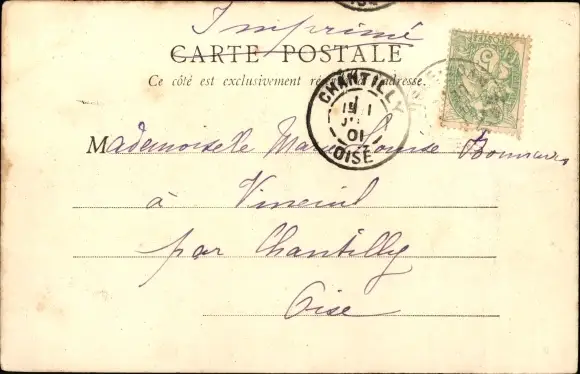 Imprimé
CARTE POSTALE
Ce côté est exclusivement ré adresse.
CHANTILLY
OISE
01
Mademoiselle Marie Louise
à Vineuil
par Chantilly
Oise